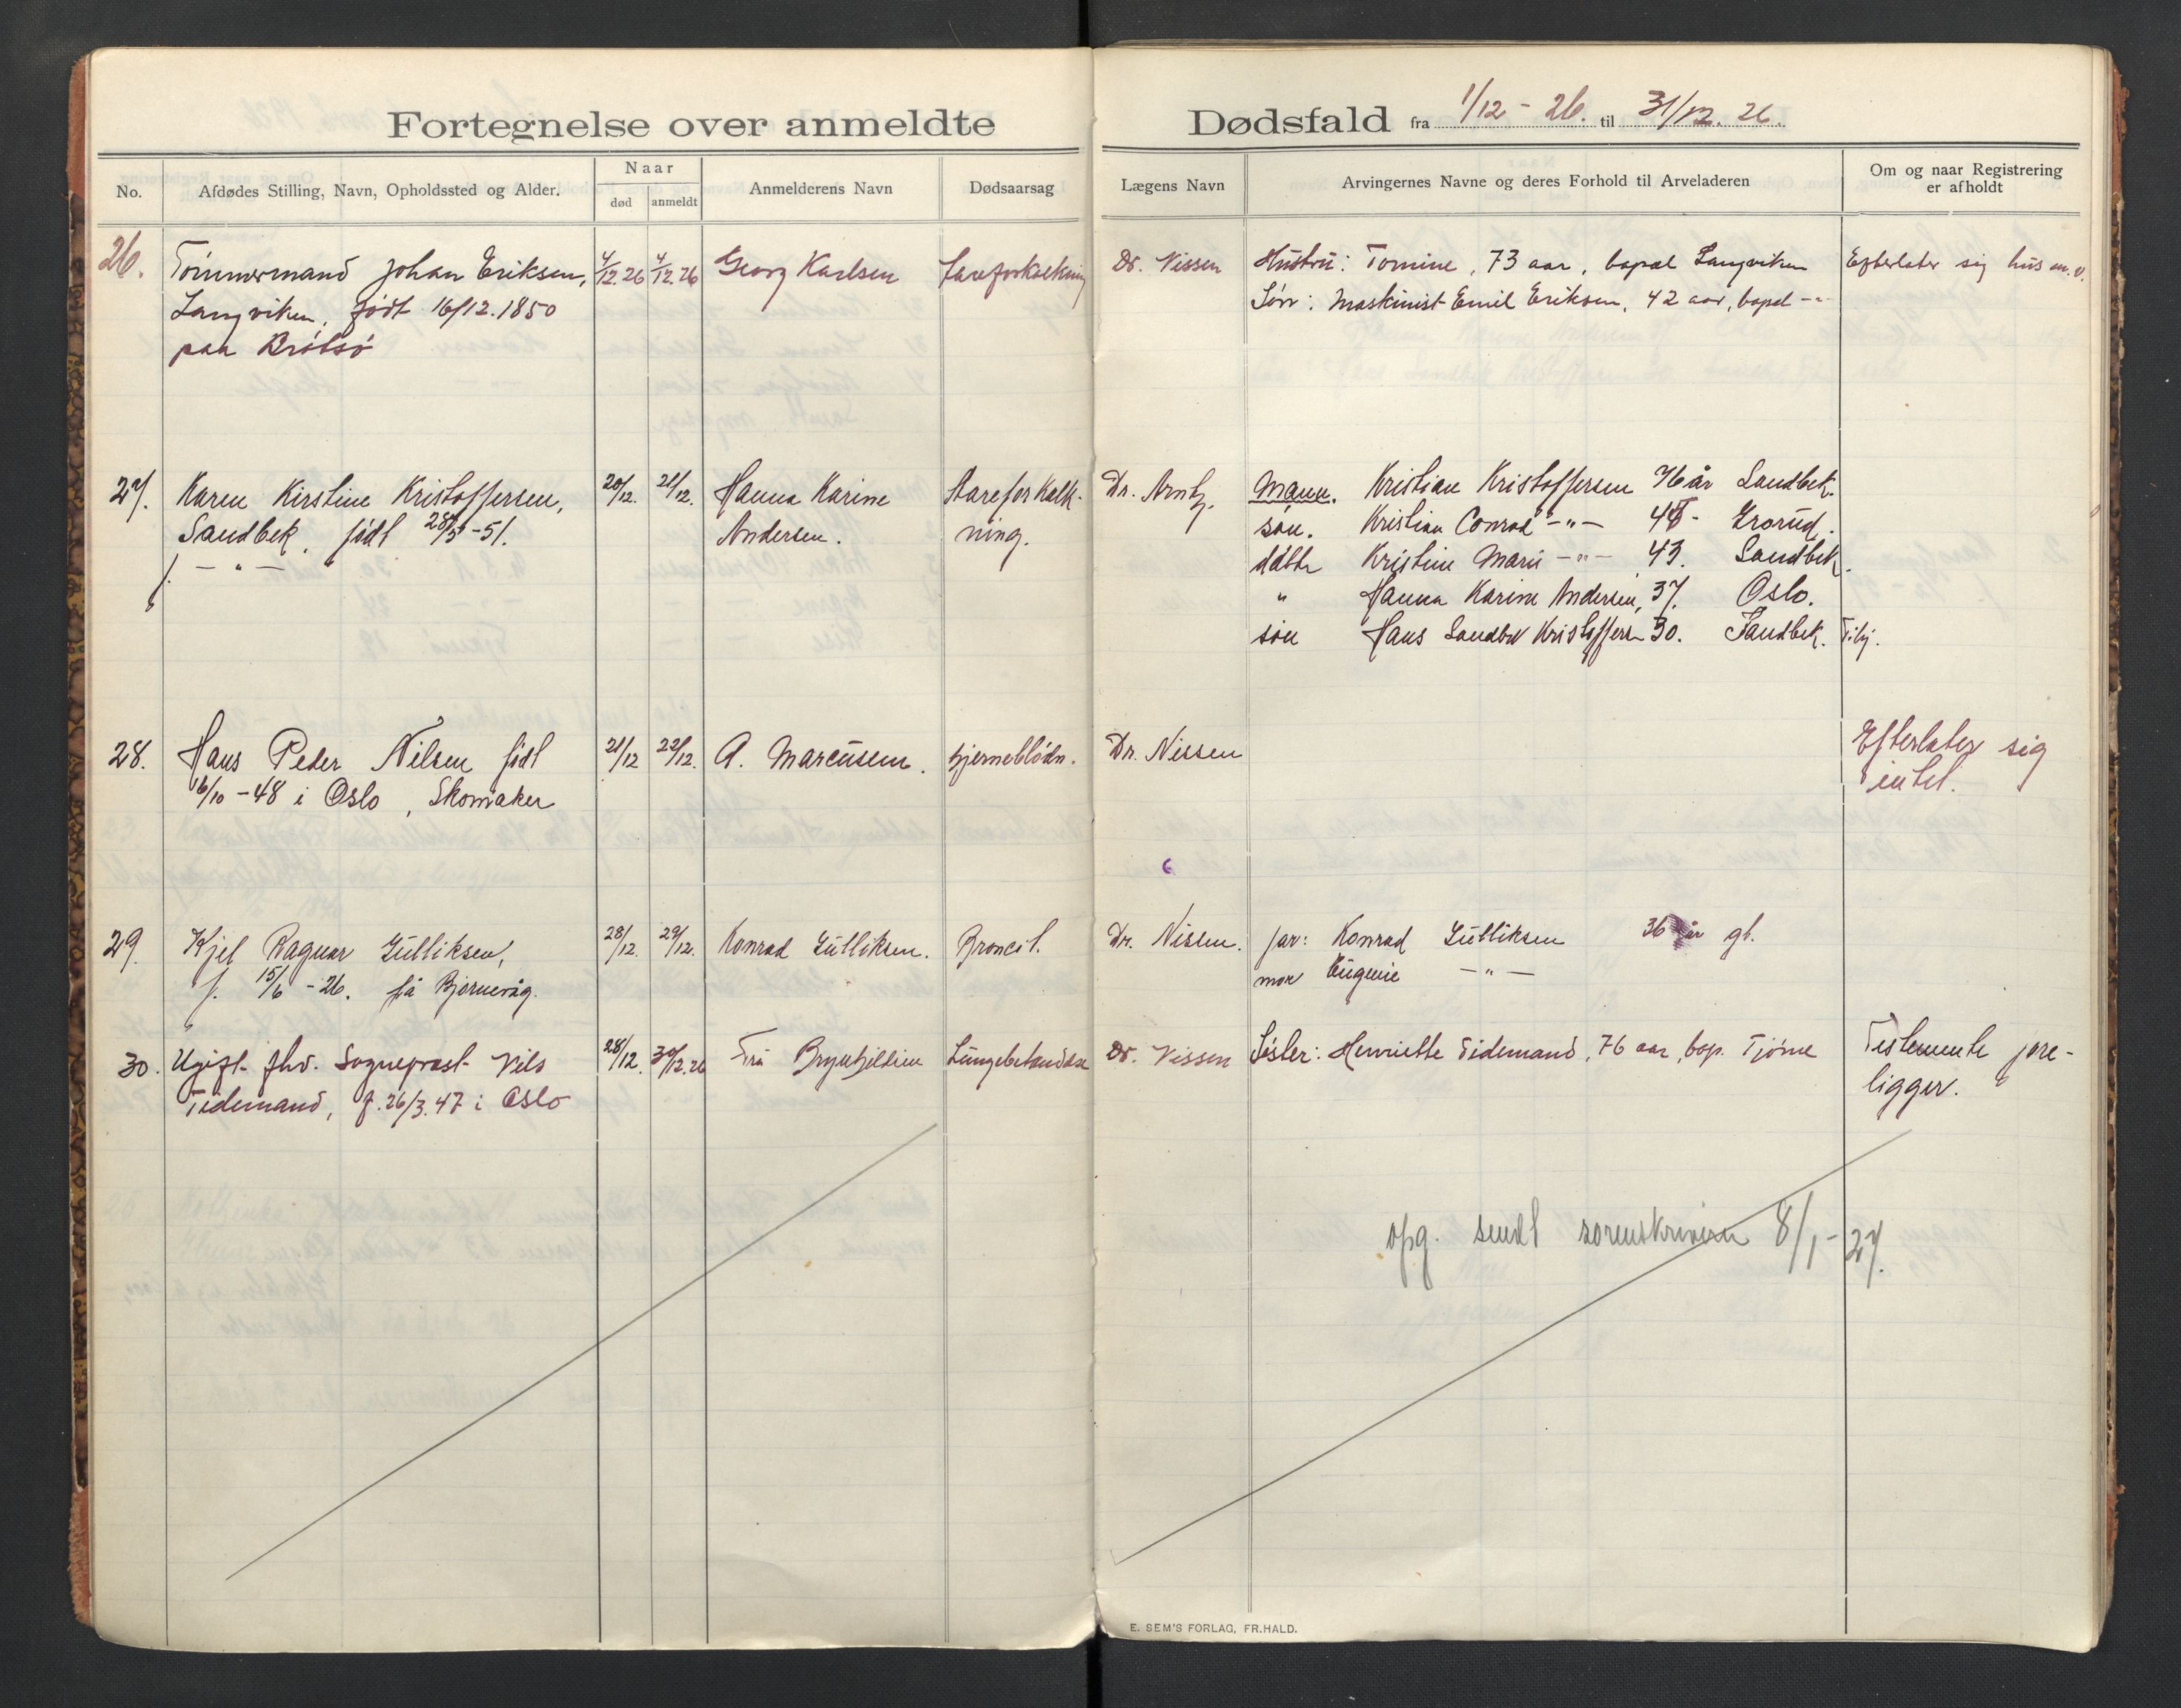 Fortegnelse over anmeldte
Dødsfald fra 1/12 - 26. til 31/12. 26.
No.
Afdødes Stilling, Navn, Opholdssted og Alder.
Naar
død
anmeldt
Anmelderens Navn
Dødsaarsag
Lægens Navn
Arvingernes Navne og deres Forhold til Arveladeren
Om og naar Registrering
er afholdt
26. Tömmermand Johan Eriksen, 4/12.26 4/12.26 Georg Karlsen Aareforkalkning Dr. Nissen Hustru: Tomine, 73 aar, bopæl Langviken Efterlater sig hus m.v.
Langviken, født 16/12.1850 Søn: Maskinist Emil Eriksen, 42 aar, bopæl -"-
paa Brøtsø
27. Karen Kirstine Kristoffersen, 20/12. 21/12. Hanna Karine Aareforkalk- Dr. Arntz. Mann. Kristian Kristoffersen 76 år Sandbek.
Sandbek, født 28/5-51. Andersen. ning. søn. Kristian Conrad -"- Grorud.
f. -"- datter Kristine Marie -"- 43. Sandbek.
" Hanna Karine Andersen, 37. Oslo.
søn Hans Sandbek Kristoffersen 30. Sandbek.
28. Hans Peder Nilsen født 21/12 22/12. A. Marcussen. hjerneblödn. Dr. Nissen Efterlater sig
16/10 - 48 i Oslo, Skomaker intet.
29. Kjel Ragnar Gulliksen, 28/12. 29/12. Konrad Gulliksen. Broncit. Dr. Nissen. far: Konrad Gulliksen 36 år gl.
f. 15/6 - 26. på Bjørnevåg. mor Eugenie -"-
30. Ugift fhv. Sogneprest Nils 28/12. 30/12.26 Fru Lungebetændelse Dr. Nissen Søster: Henriette Tidemand, 76 aar, bop. Tjøme Testemente fore-
Tidemand, f. 26/3.47 i Oslo ligger.
opg. sendt sorenskriveren 8/1-27.
E. SEM'S FORLAG, FR.HALD.